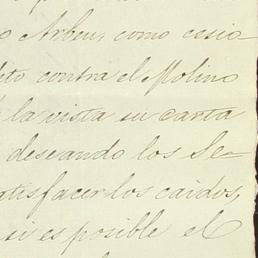 o Arbeu, como cesio-
dito contra el Molino
la vista su carta
deseando los Se-
atisfacer los caidos,
si es posible el